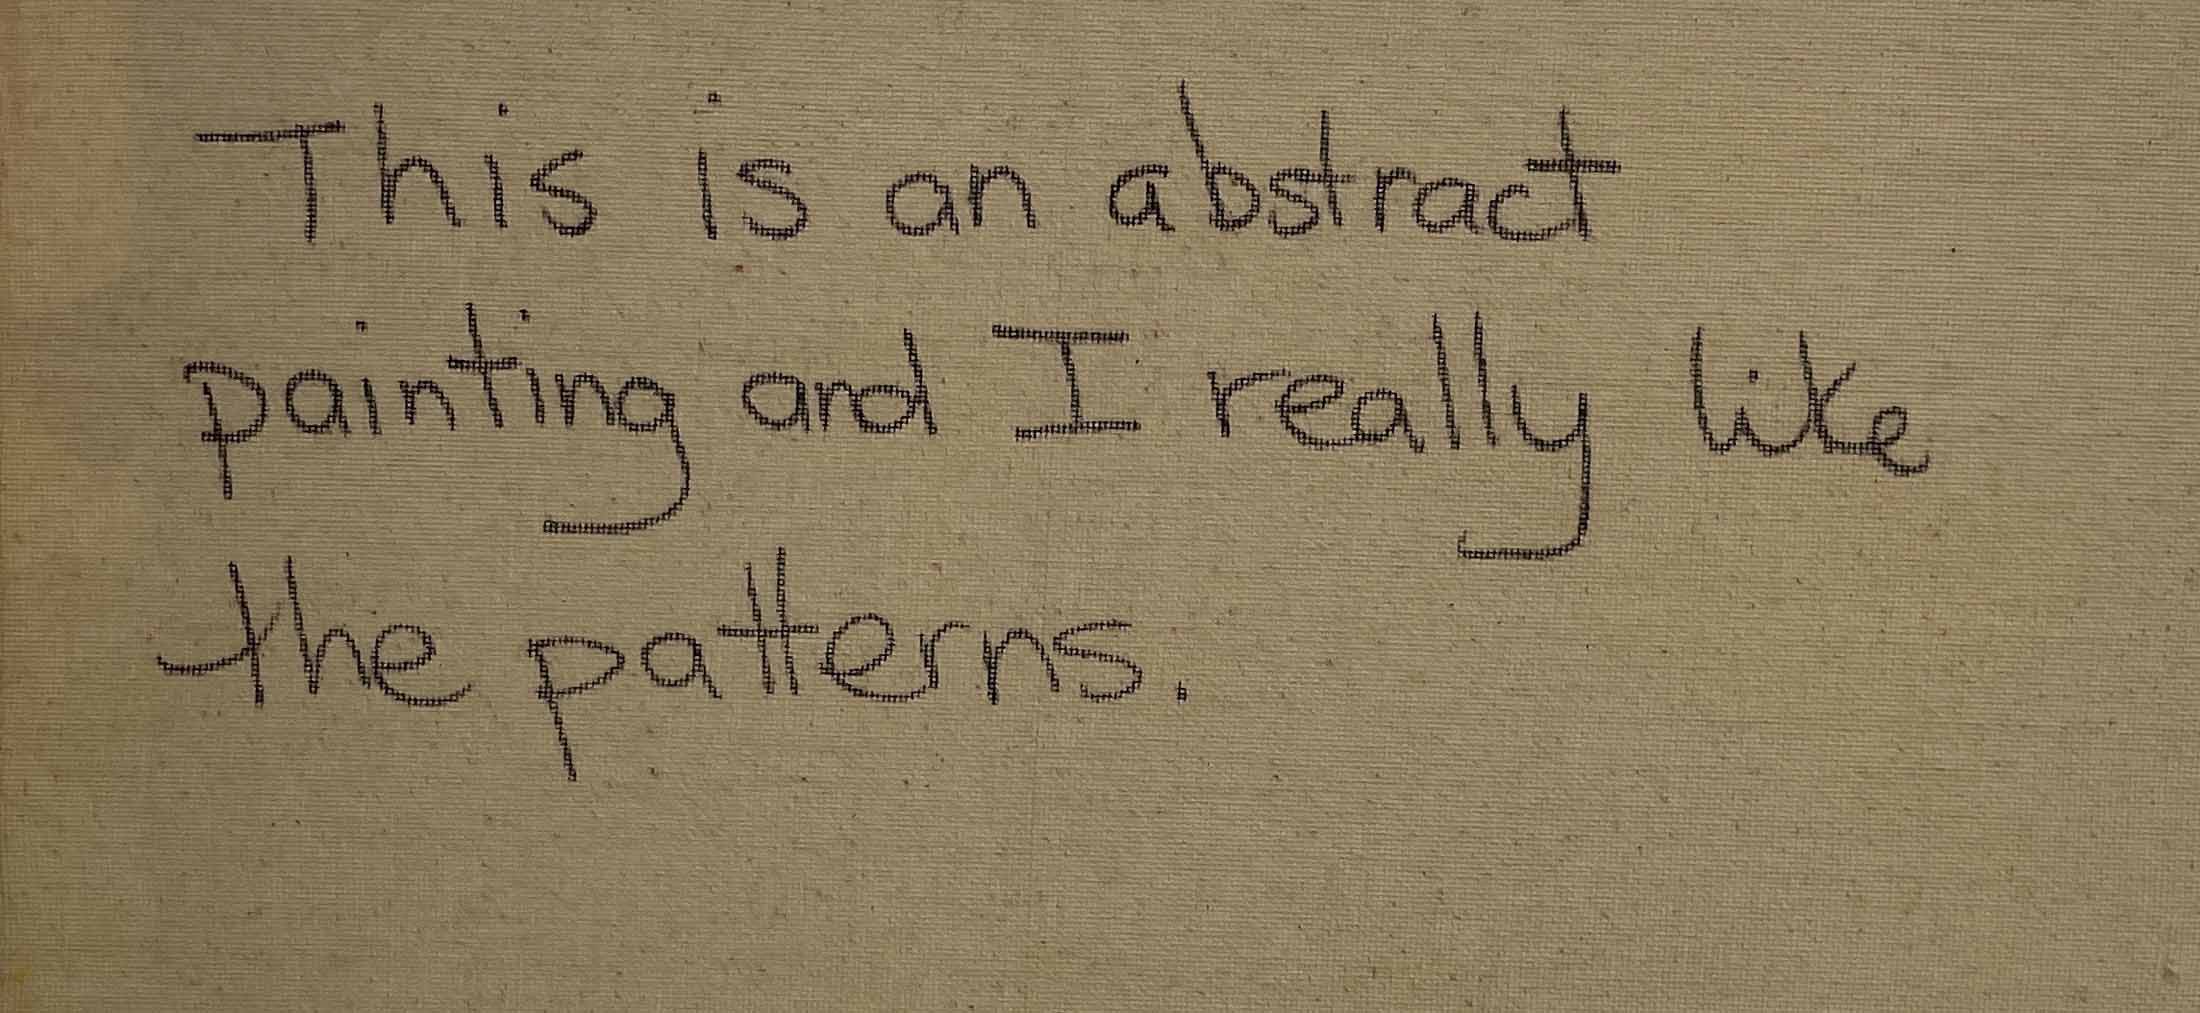 This is an abstract
painting and I really like
the patterns.